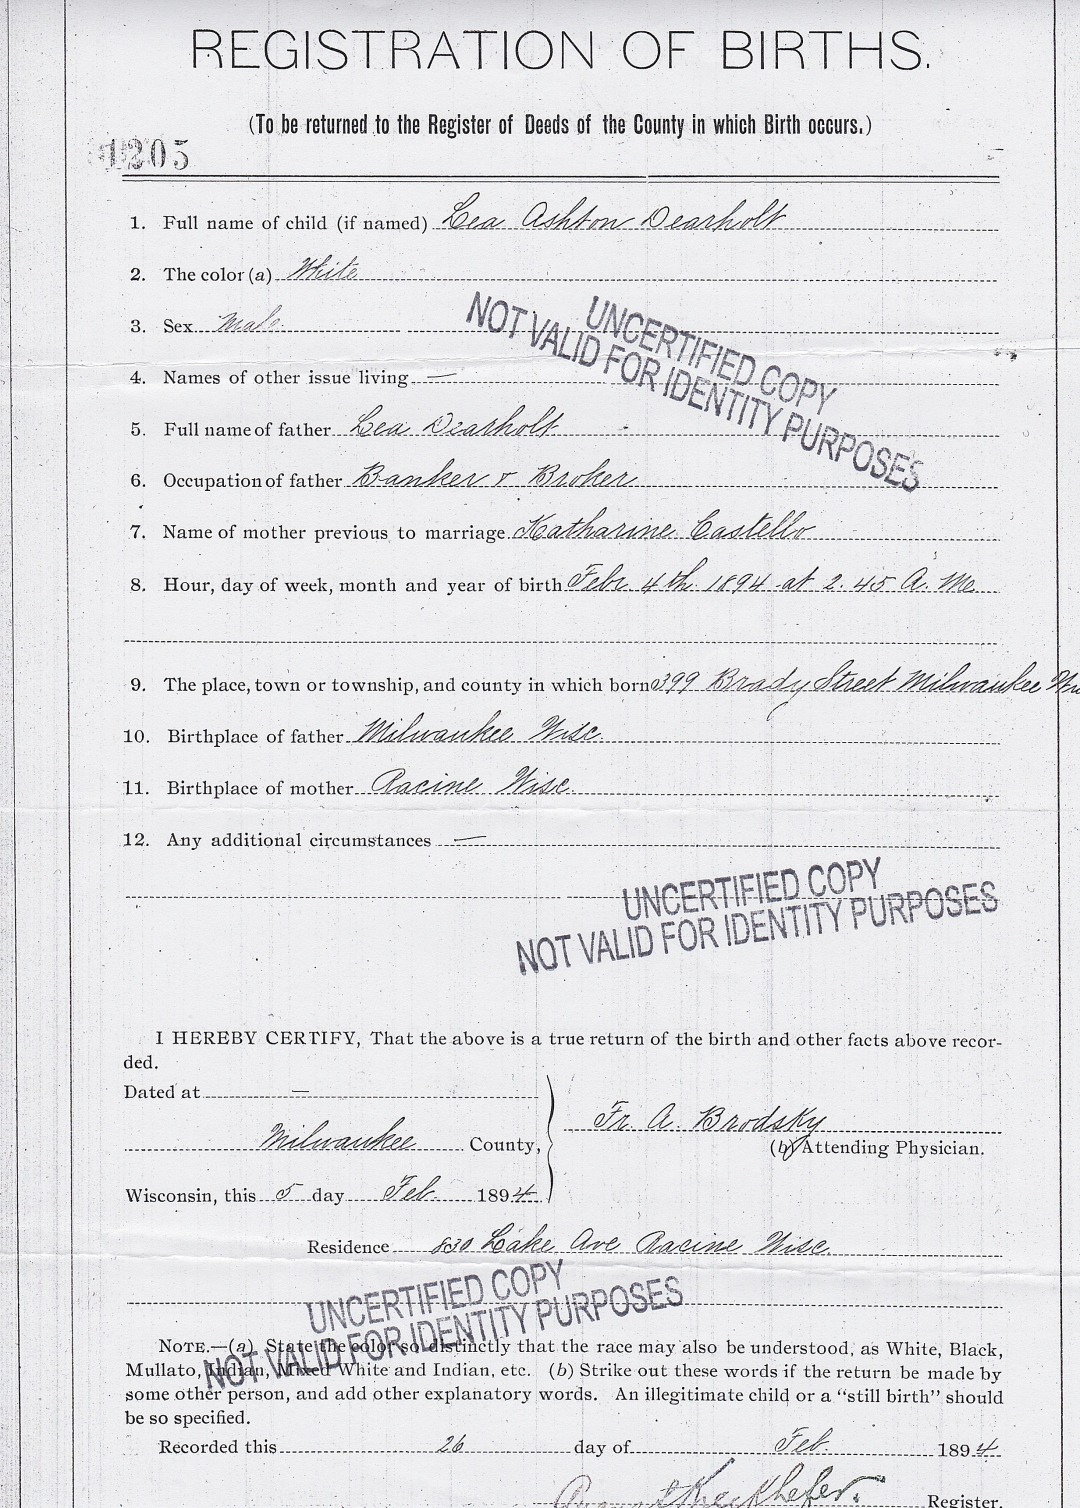 REGISTRATION OF BIRTHS.
(To be returned to the Register of Deeds of the County in which Birth occurs.)
1205
1. Full name of child (if named) Lea Ashton Dearholt
2. The color (a) White
3. Sex Male
UNCERTIFIED COPY
NOT VALID FOR IDENTITY PURPOSES
4. Names of other issue living —
5. Full name of father Lea Dearholt
6. Occupation of father Banker & Broker
7. Name of mother previous to marriage Katharine Castello
8. Hour, day of week, month and year of birth Febr 4th 1894 at 2.45 A. M.
9. The place, town or township, and county in which born 399 Brady Street Milwaukee
10. Birthplace of father Milwaukee Wisc.
11. Birthplace of mother Racine Wisc.
12. Any additional circumstances —
UNCERTIFIED COPY
NOT VALID FOR IDENTITY PURPOSES
I HEREBY CERTIFY, That the above is a true return of the birth and other facts above recor-
ded.
Dated at —
Fr. A. Brodsky
Milwaukee County,
(b) Attending Physician.
Wisconsin, this 5 day Feb. 1894
Residence 830 Lake Ave Racine Wisc.
UNCERTIFIED COPY
NOT VALID FOR IDENTITY PURPOSES
NOTE.—(a) State the color so distinctly that the race may also be understood, as White, Black,
Mullato, Indian, Mixed White and Indian, etc. (b) Strike out these words if the return be made by
some other person, and add other explanatory words. An illegitimate child or a "still birth" should
be so specified.
Recorded this 26 day of Feb. 1894
Register.